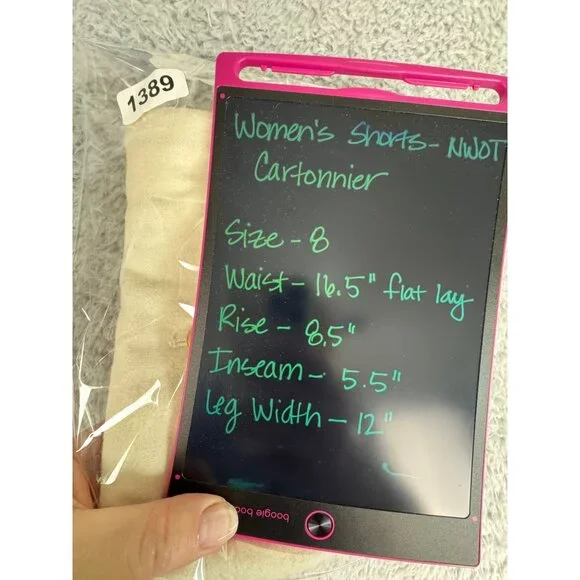 1389
Women's Shorts - NWOT
Cartonnier
Size - 8
Waist - 16.5" flat lay
Rise - 8.5"
Inseam - 5.5"
Leg Width - 12"
boogie boo